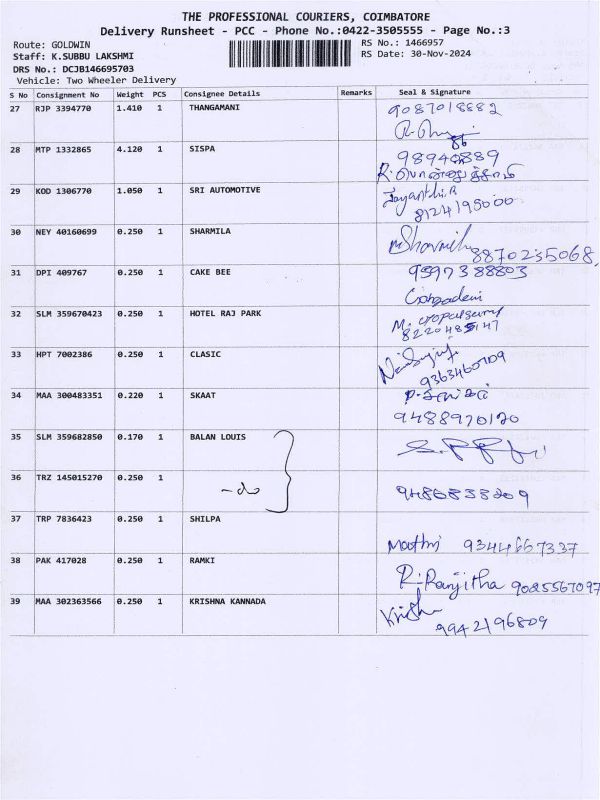 THE PROFESSIONAL COURIERS, COIMBATORE
Delivery Runsheet - PCC - Phone No.:0422-3505555 - Page No.:3
Route: GOLDWIN
RS No.: 1466957
Staff: K.SUBBU LAKSHMI
RS Date: 30-Nov-2024
DRS No.: DCJB146695703
Vehicle: Two Wheeler Delivery
S No Consignment No Weight PCS Consignee Details Remarks Seal & Signature
27 RJP 3394770 1.410 1 THANGAMANI 9087018882
28 MTP 1332865 4.120 1 SISPA
29 KOD 1306770 1.050 1 SRI AUTOMOTIVE Jayanthi.R
8124195000
30 NEY 40160699 0.250 1 SHARMILA 8870235068
31 DPI 409767 0.250 1 CAKE BEE 9597388803
32 SLM 359670423 0.250 1 HOTEL RAJ PARK
8220485147
33 HPT 7002386 0.250 1 CLASIC
9363460709
34 MAA 300483351 0.220 1 SKAAT
9488970120
35 SLM 359682850 0.170 1 BALAN LOUIS
36 TRZ 145015270 0.250 1 -do 9486838209
37 TRP 7836423 0.250 1 SHILPA
9344667337
38 PAK 417028 0.250 1 RAMKI R. Ranjitha 9025567097
39 MAA 302363566 0.250 1 KRISHNA KANNADA
9942196809